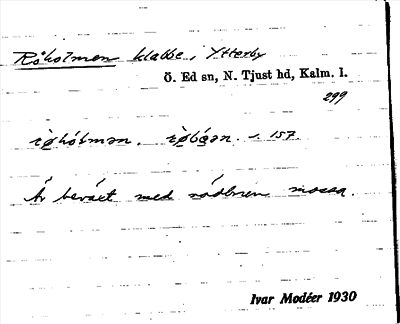 Röholmen klabbe i Ytterby
Ö. Ed sn, N. Tjust hd, Kalm. l.
299
s. 157.
Är beväxt med rödbrun mossa.
Ivar Modéer 1930